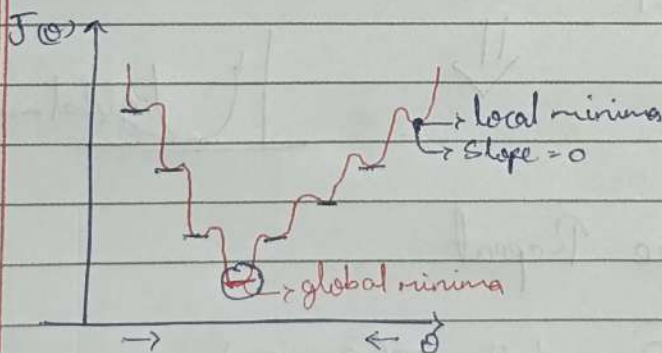 J(θ)
→ local minima
→ slope = 0
→ global minima
θ